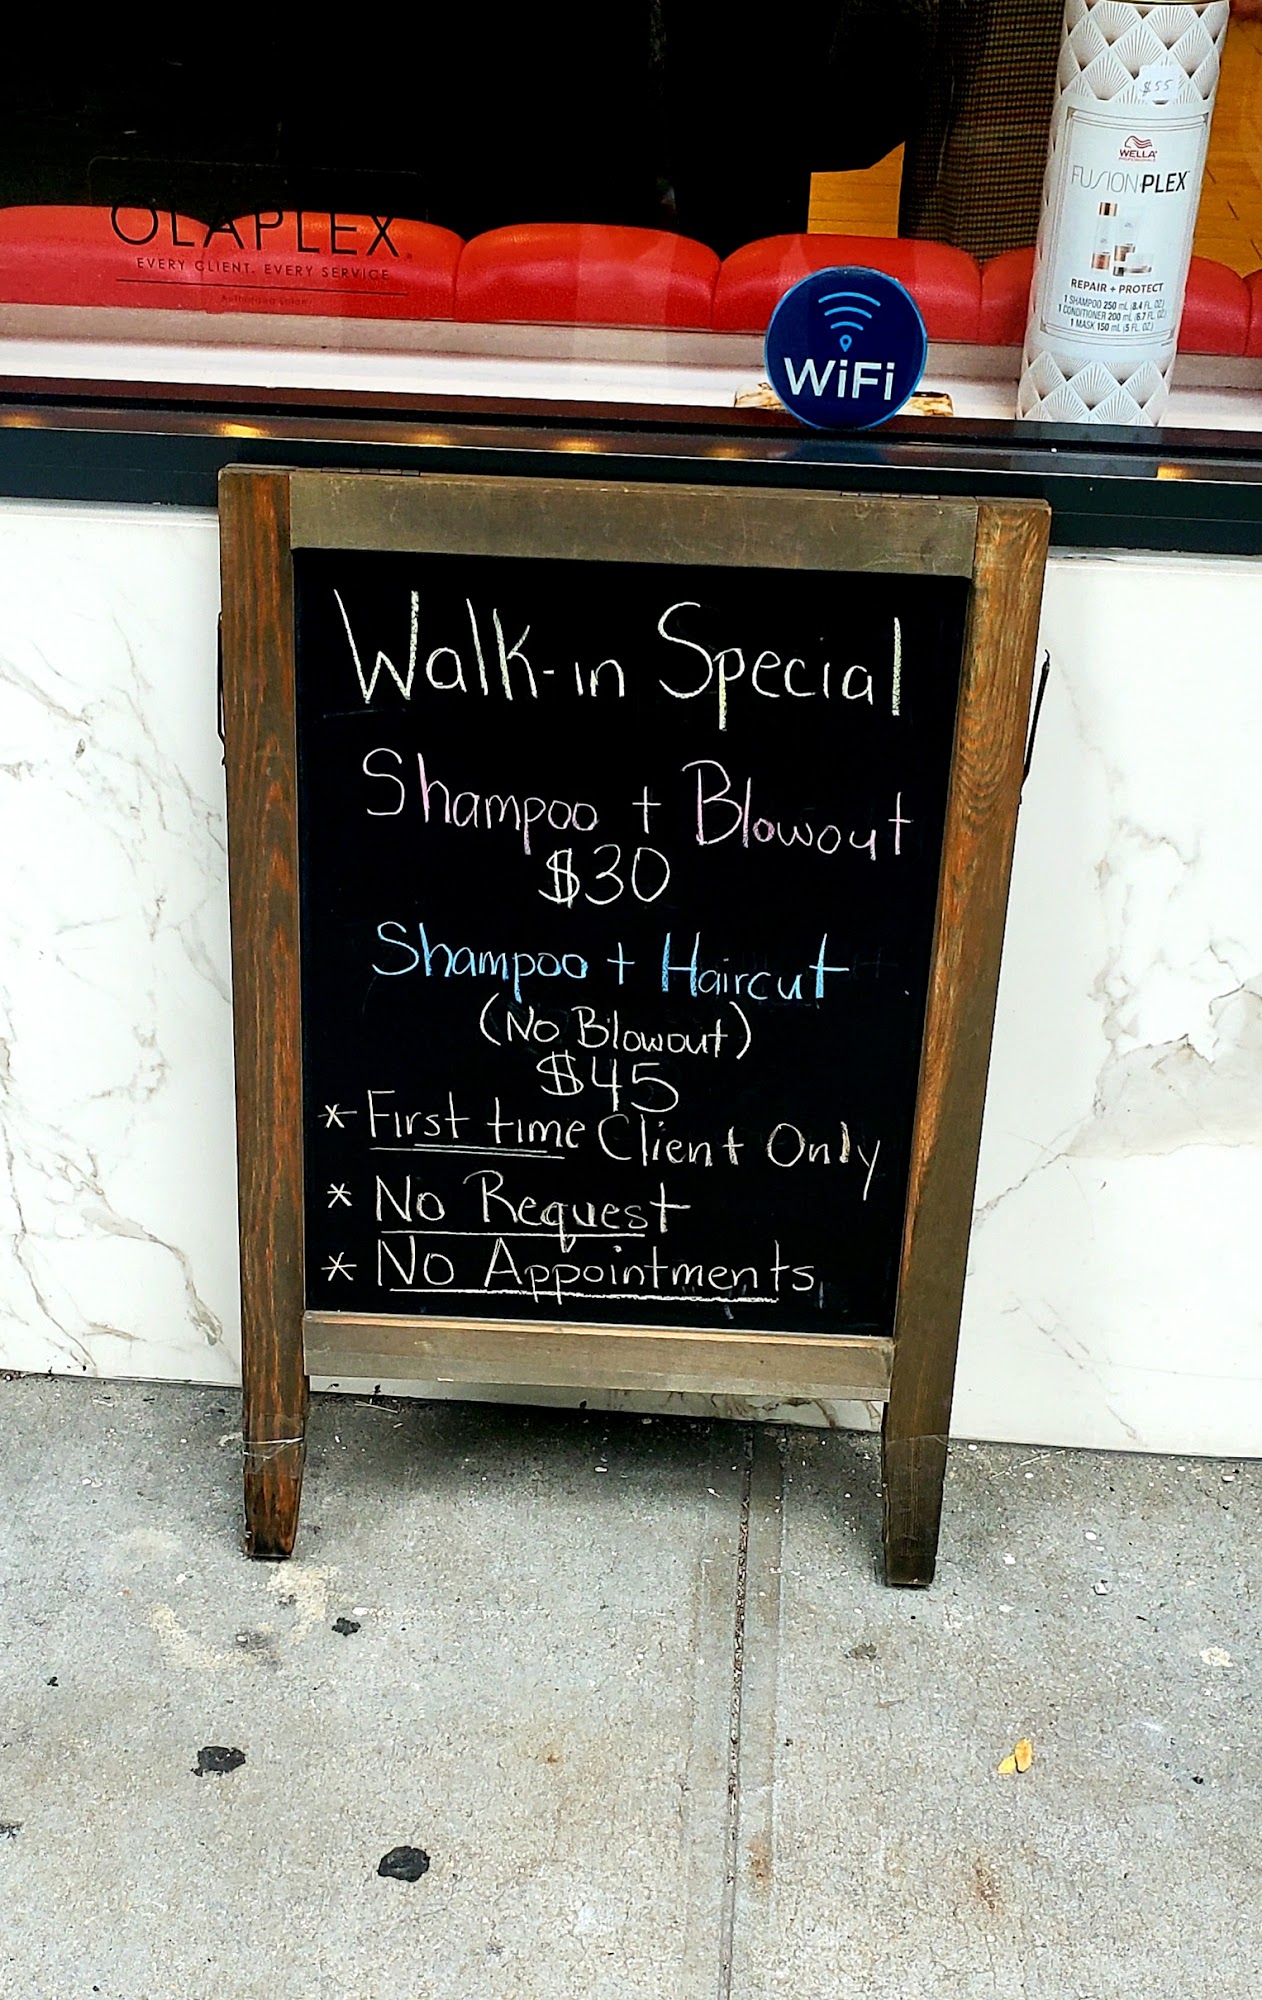 OLAPLEX
EVERY CLIENT. EVERY SERVICE
Authorized Salon
$55
WELLA
PROFESSIONALS
FUSIONPLEX
REPAIR + PROTECT
1 SHAMPOO 250 mL (8.4 FL. OZ.)
1 CONDITIONER 200 mL (6.7 FL. OZ.)
1 MASK 150 mL (5 FL. OZ.)
WiFi
Walk-in Special
Shampoo + Blowout
$30
Shampoo + Haircut
(No Blowout)
$45
* First time Client Only
* No Request
* No Appointments